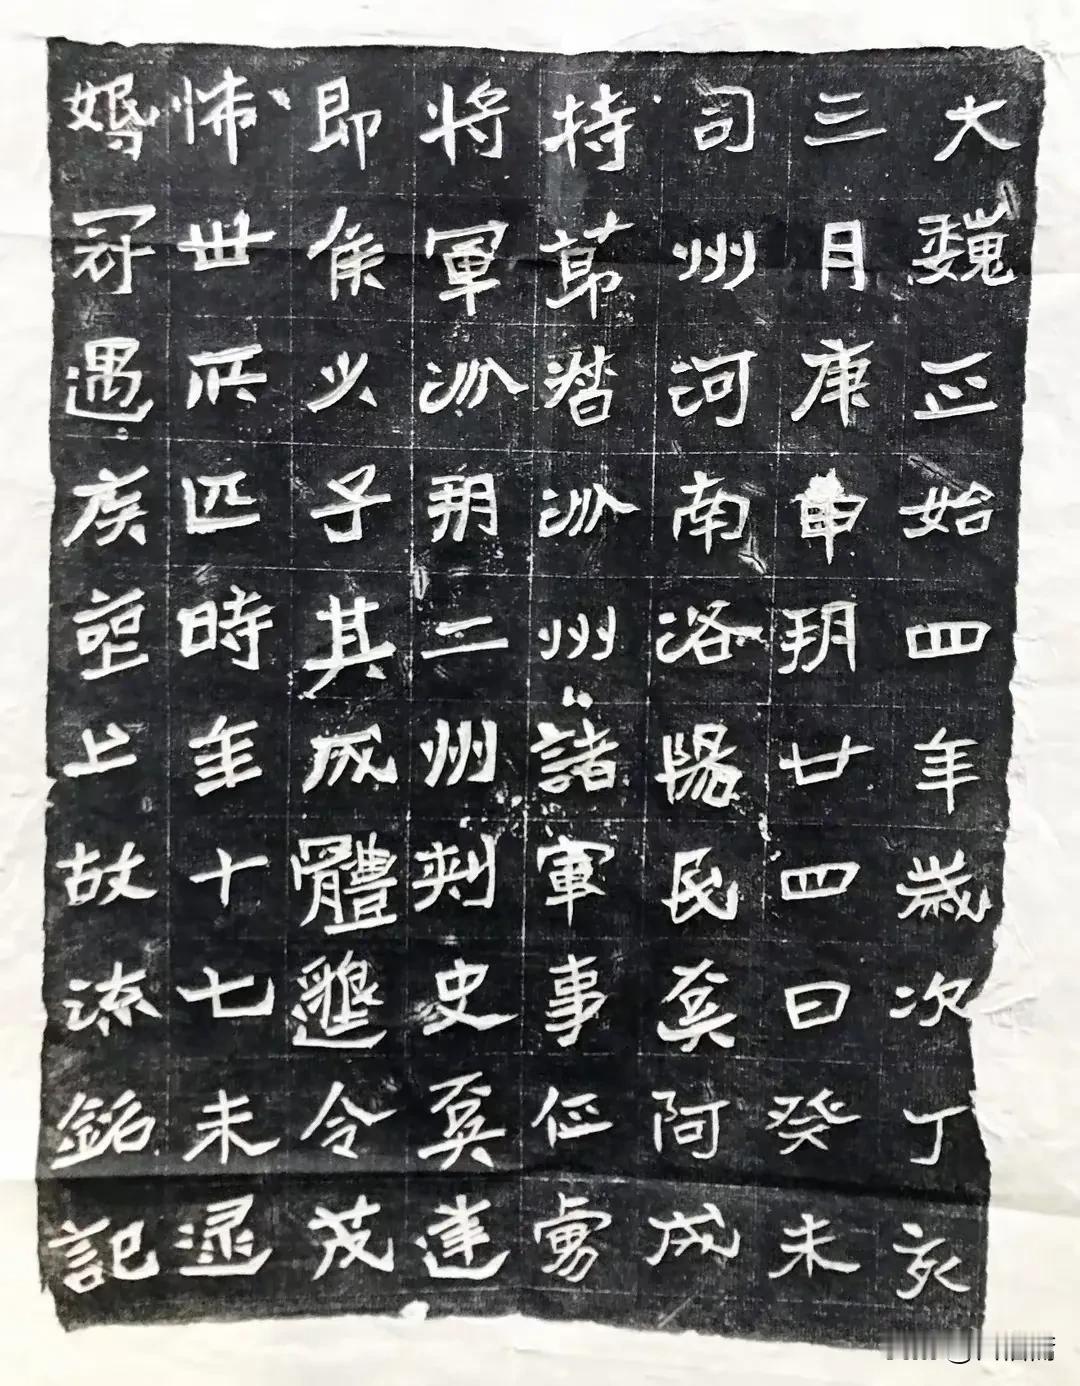 大魏正始四年歲次丁亥
三月庚申朔廿四日癸未
司州河南洛陽民奚阿成
持節督沙州諸軍事征虜
將軍沙朔二州刺史奚達
即侯少子其成體邈令茂
悕世所匹時年十七未逮
婚冠遇疾塟上故流銘記